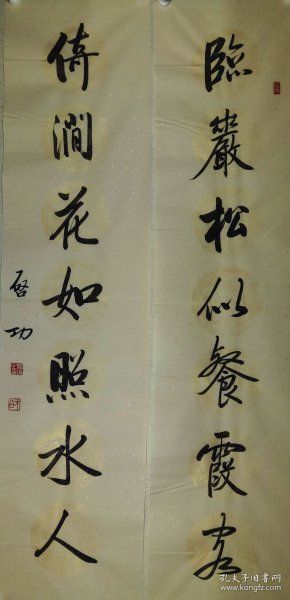 臨巖松似餐霞客
倚澗花如照水人
啓功
孔夫子旧书网
www.kongfz.com